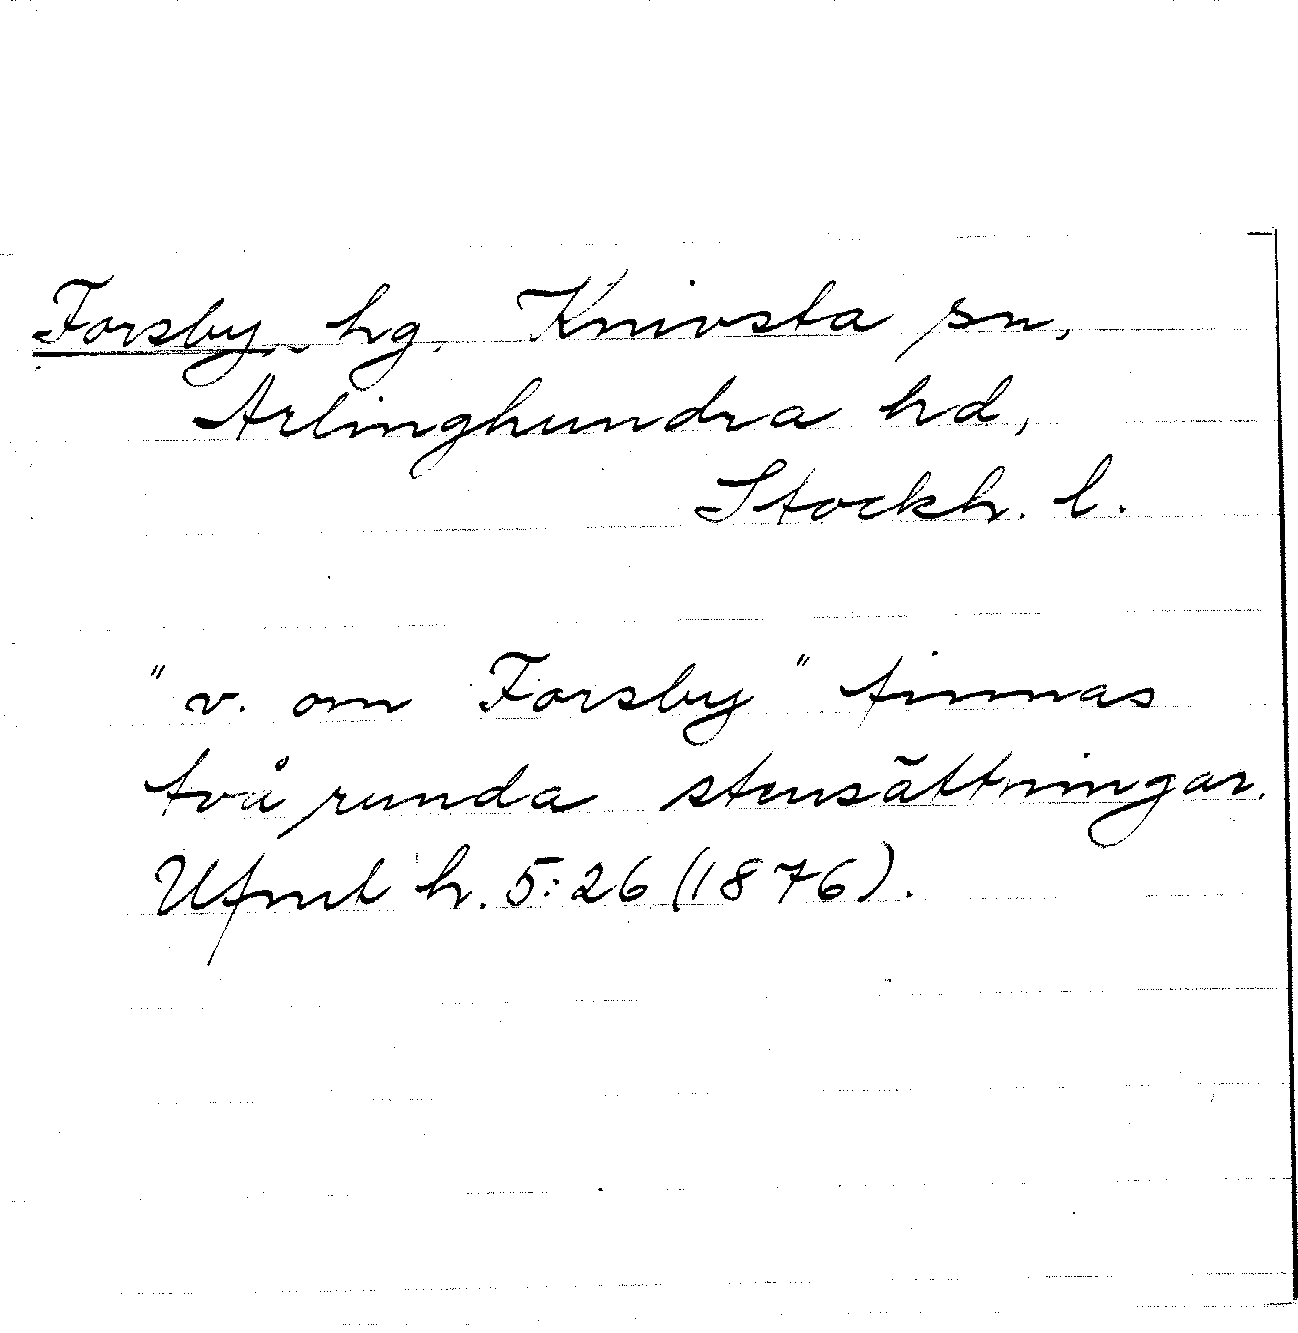 Forsby hg, Knivsta sn,
Ärlinghundra hd,
Stockh. l.
"v. om Forsby" finnas
två runda stensättningar.
Ufmt h. 5:26 (1876).